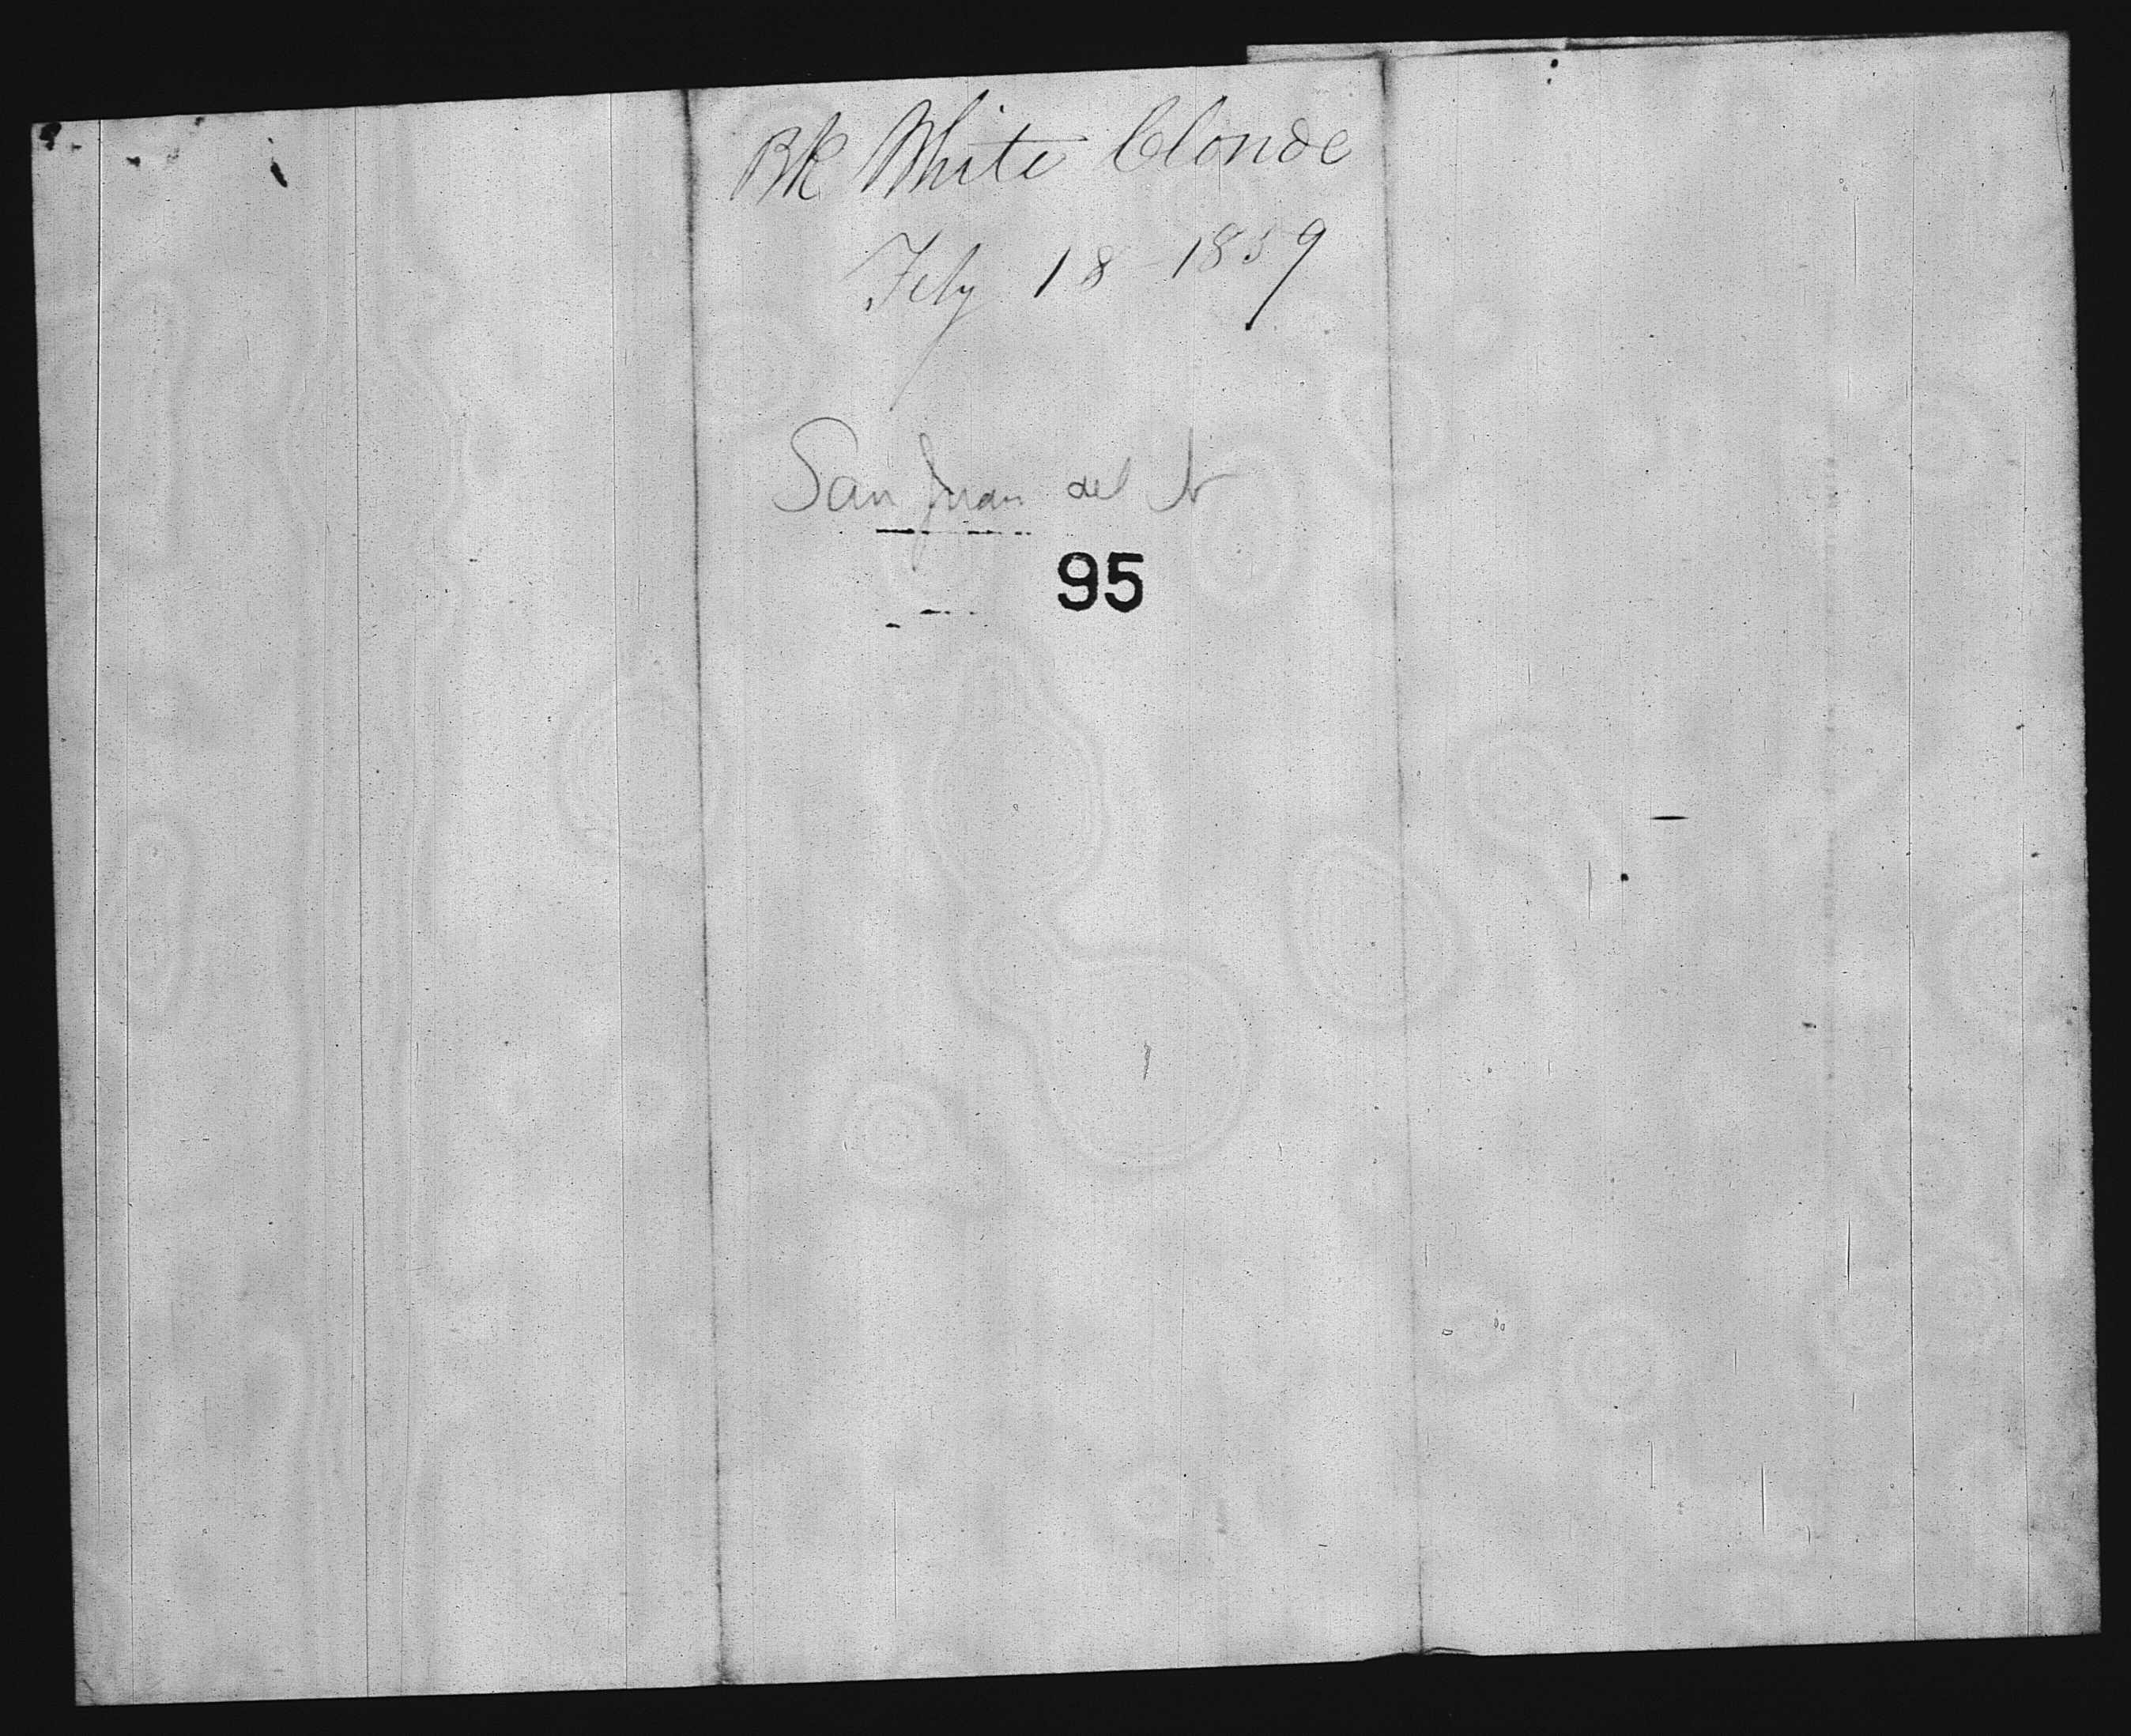 Bk White Clonde
Feby 18 - 1859
San Juan del N
95